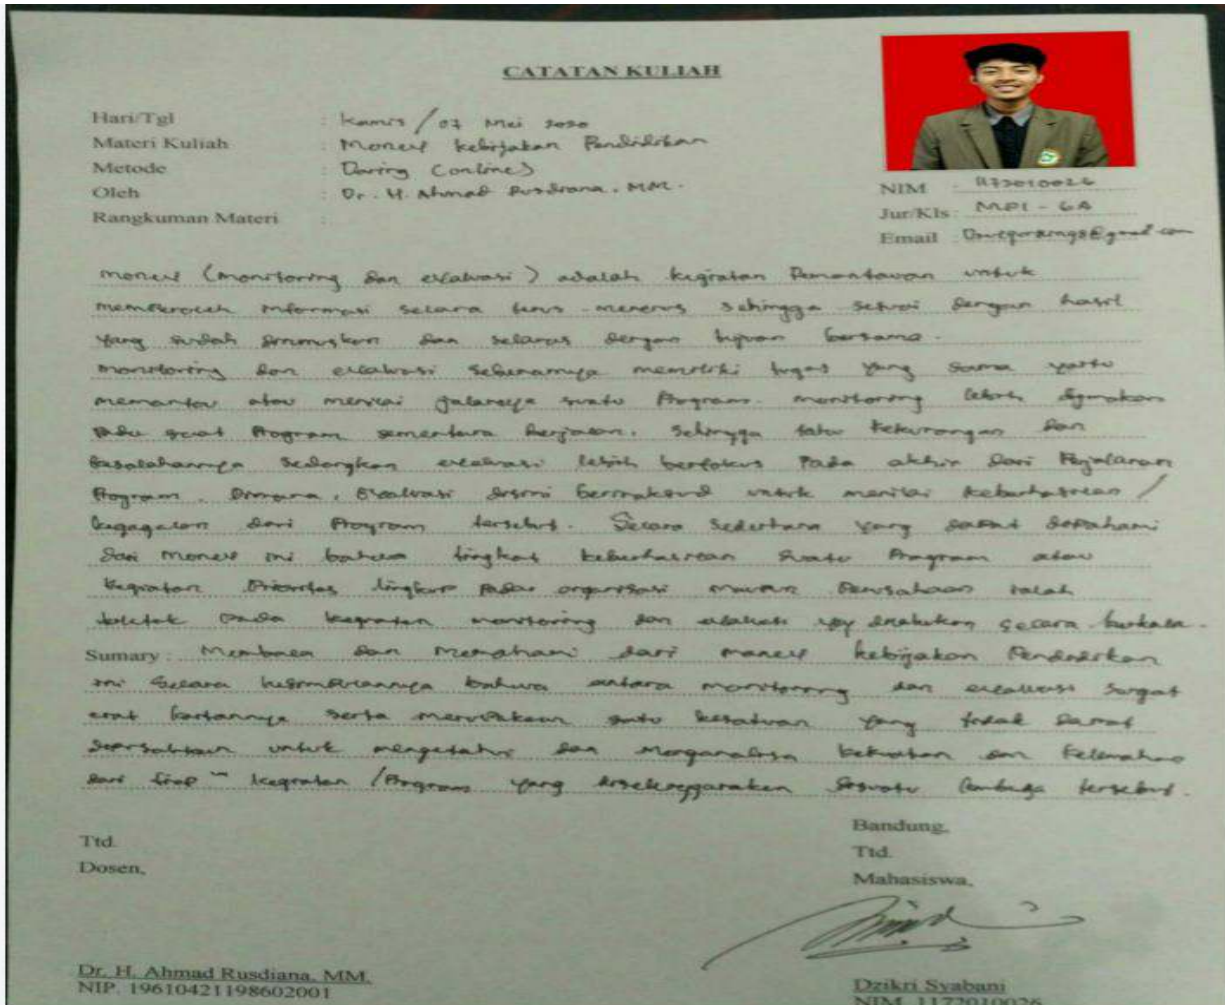 CATATAN KULIAH
Hari/Tgl : Kamis / 07 Mei 2020
Materi Kuliah : Monev kebijakan Pendidikan
Metode : Daring (online)
Oleh : Dr. H. Ahmad Rusdiana, MM.
Rangkuman Materi :
NIM : 1172010026
Jur/Kls : MPI - 6A
Email : @gmail.com
Monev (monitoring dan evaluasi) adalah kegiatan Pemantauan untuk
memperoleh informasi secara terus-menerus sehingga sesuai dengan hasil
yang sudah dirumuskan dan selaras dengan tujuan bersama.
monitoring dan evaluasi sebenarnya memiliki tugas yang sama yaitu
memantau atau menilai jalannya suatu Program. monitoring lebih digunakan
Pada saat Program sementara berjalan, sehingga tahu kekurangan dan
kesalahannya sedangkan evaluasi lebih berfokus Pada akhir dari Perjalanan
Program. Dimana, Evaluasi disini bermaksud untuk menilai keberhasilan /
kegagalan dari Program tersebut. Secara sederhana yang dapat dipahami
dari monev ini bahwa tingkat keberhasilan suatu Program atau
kegiatan Prioritas lingkup pada organisasi maupun Perusahaan ialah
terletak pada kegiatan monitoring dan evaluasi yg dilakukan secara berkala.
Sumary : Membaca dan Memahami dari monev kebijakan Pendidikan
ini secara kesimpulannya bahwa antara monitoring dan evaluasi sangat
erat kaitannya serta merupakan satu kesatuan yang tidak dapat
dipisahkan untuk mengetahui dan menganalisa kekuatan dan kelemahan
dari tiap" kegiatan /Program yang diselenggarakan disuatu lembaga tersebut.
Ttd.
Dosen,
Dr. H. Ahmad Rusdiana, MM.
NIP. 196104211986021001
Bandung,
Ttd.
Mahasiswa,
Dzikri Syabani
NIM. 1172010026